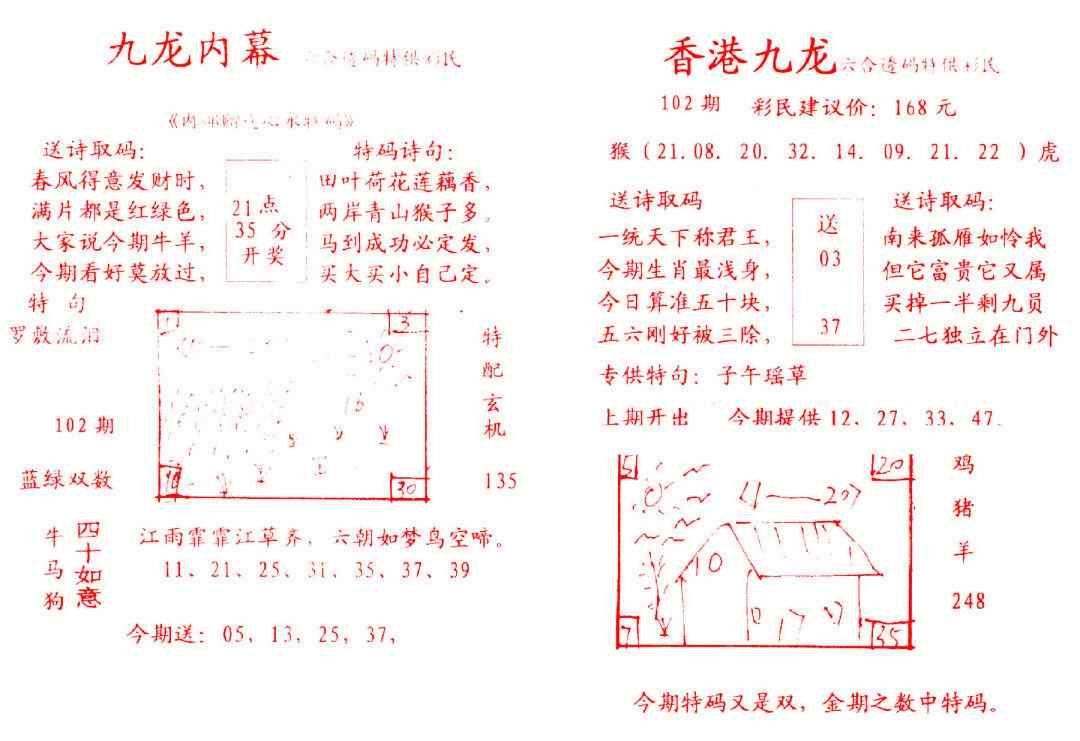 九龙内幕 六合透码特供彩民
送诗取码：
春风得意发财时，
满片都是红绿色，
大家说今期牛羊，
今期看好莫放过，
21点
35 分
开奖
特码诗句：
田叶荷花莲藕香，
两岸青山猴子多。
马到成功必定发，
买大买小自己定。
特 句
罗敷流泪
102 期
蓝绿双数
1
3
0
16
30
特
配
玄
机
135
牛
马
狗
四十如意
江雨霏霏江草齐，六朝如梦鸟空啼。
11、21、25、31、35、37、39
今期送：05、13、25、37，
香港九龙 六合透码特供彩民
102 期 彩民建议价：168 元
猴（21.08. 20. 32. 14. 09. 21. 22 ）虎
送诗取码
一统天下称君王，
今期生肖最浅身，
今日算准五十块，
五六刚好被三除，
送
03
37
送诗取码：
南来孤雁如怜我
但它富贵它又属
买掉一半剩九员
二七独立在门外
专供特句：子午瑶草
上期开出 今期提供 12、27、33、47.
5
20
10
7
35
鸡
猪
羊
248
今期特码又是双，金期之数中特码。